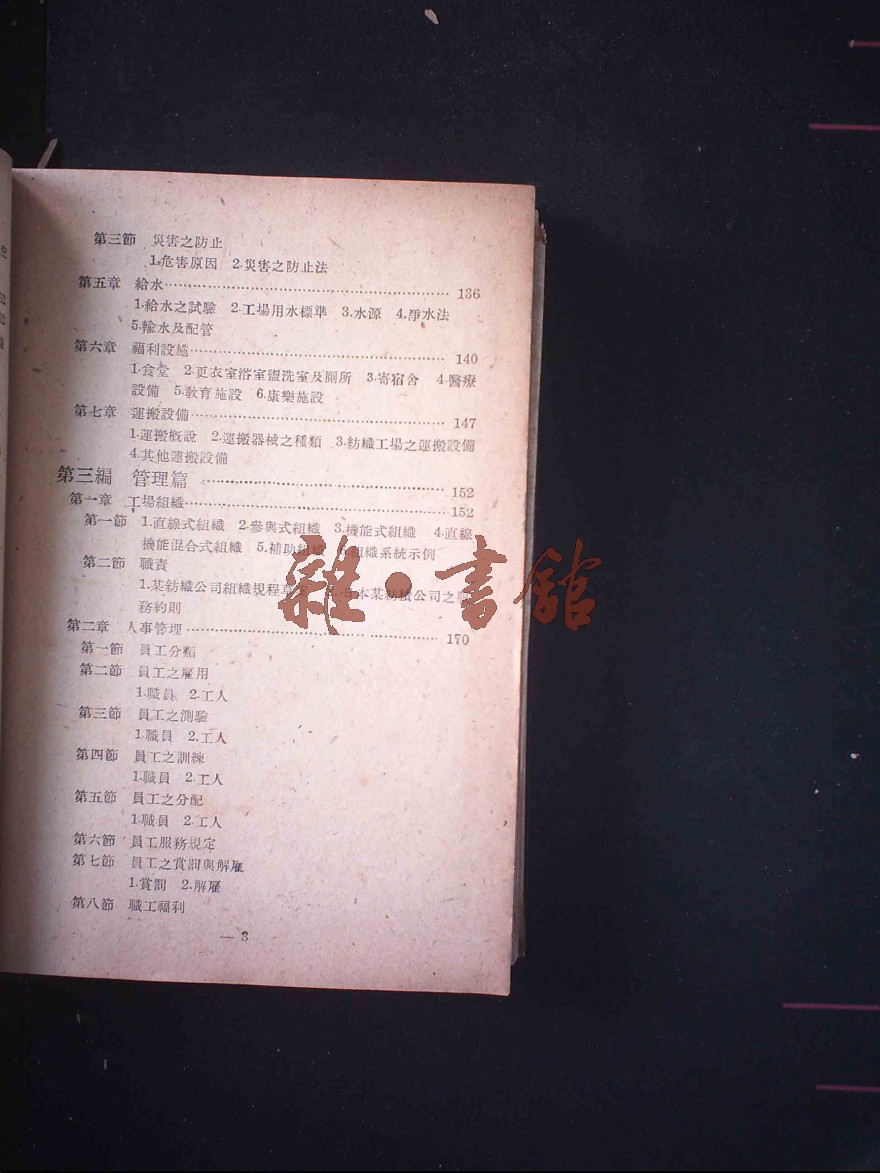 第三節 災害之防止
1.危害原因 2.災害之防止法
第五章 給水……136
1.給水之試驗 2.工場用水標準 3.水源 4.淨水法
5.輸水及配管
第六章 福利設施……140
1.食堂 2.更衣室浴室盥洗室及厠所 3.寄宿舍 4.醫療
設備 5.教育施設 6.康樂施設
第七章 運搬設備……147
1.運搬槪說 2.運搬器械之種類 3.紡織工場之運搬設備
4.其他運搬設備
第三編 管理篇……152
第一章 工場組織……152
第一節 1.直線式組織 2.參與式組織 3.機能式組織 4.直線
機能混合式組織 5.補助組織 6.組織系統示例
第二節 職責
1.某紡織公司組織規程草 日本某紡績公司之
務約則
第二章 人事管理……170
第一節 員工分類
第二節 員工之雇用
1.職員 2.工人
第三節 員工之測驗
1.職員 2.工人
第四節 員工之訓練
1.職員 2.工人
第五節 員工之分配
1.職員 2.工人
第六節 員工服務規定
第七節 員工之賞罰與解雇
1.賞罰 2.解雇
第八節 職工福利
— 3
雜·書館